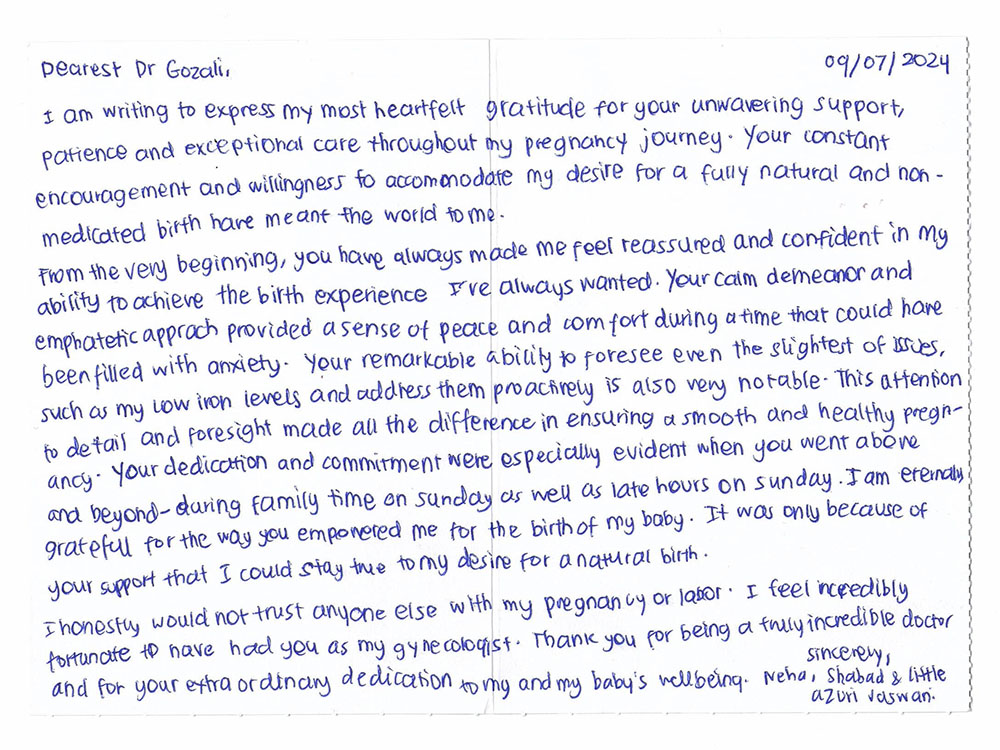 Dearest Dr Gozali,
09/07/2024
I am writing to express my most heartfelt gratitude for your unwavering support,
patience and exceptional care throughout my pregnancy journey. Your constant
encouragement and willingness to accommodate my desire for a fully natural and non-
medicated birth have meant the world to me.
From the very beginning, you have always made me feel reassured and confident in my
ability to achieve the birth experience I've always wanted. Your calm demeanor and
emphatetic apprach provided a sense of peace and comfort during a time that could have
been filled with anxiety. Your remarkable ability to foresee even the slightest of issues,
such as my low iron levels and address them proactively is also very notable. This attention
to detail and foresight made all the difference in ensuring a smooth and healthy pregn-
ancy. Your dedication and commitment were especially evident when you went above
and beyond - during family time on sunday as well as late hours on sunday. I am eternally
grateful for the way you empowered me for the birth of my baby. It was only because of
your support that I could stay true to my desire for a natural birth.
I honestly would not trust anyone else with my pregnancy or labor. I feel incredibly
fortunate to have had you as my gynecologist. Thank you for being a truly incredible doctor
and for your extraordinary dedication to my and my baby's wellbeing.
sincerely,
Neha, Shabad & little
azuri vaswani.